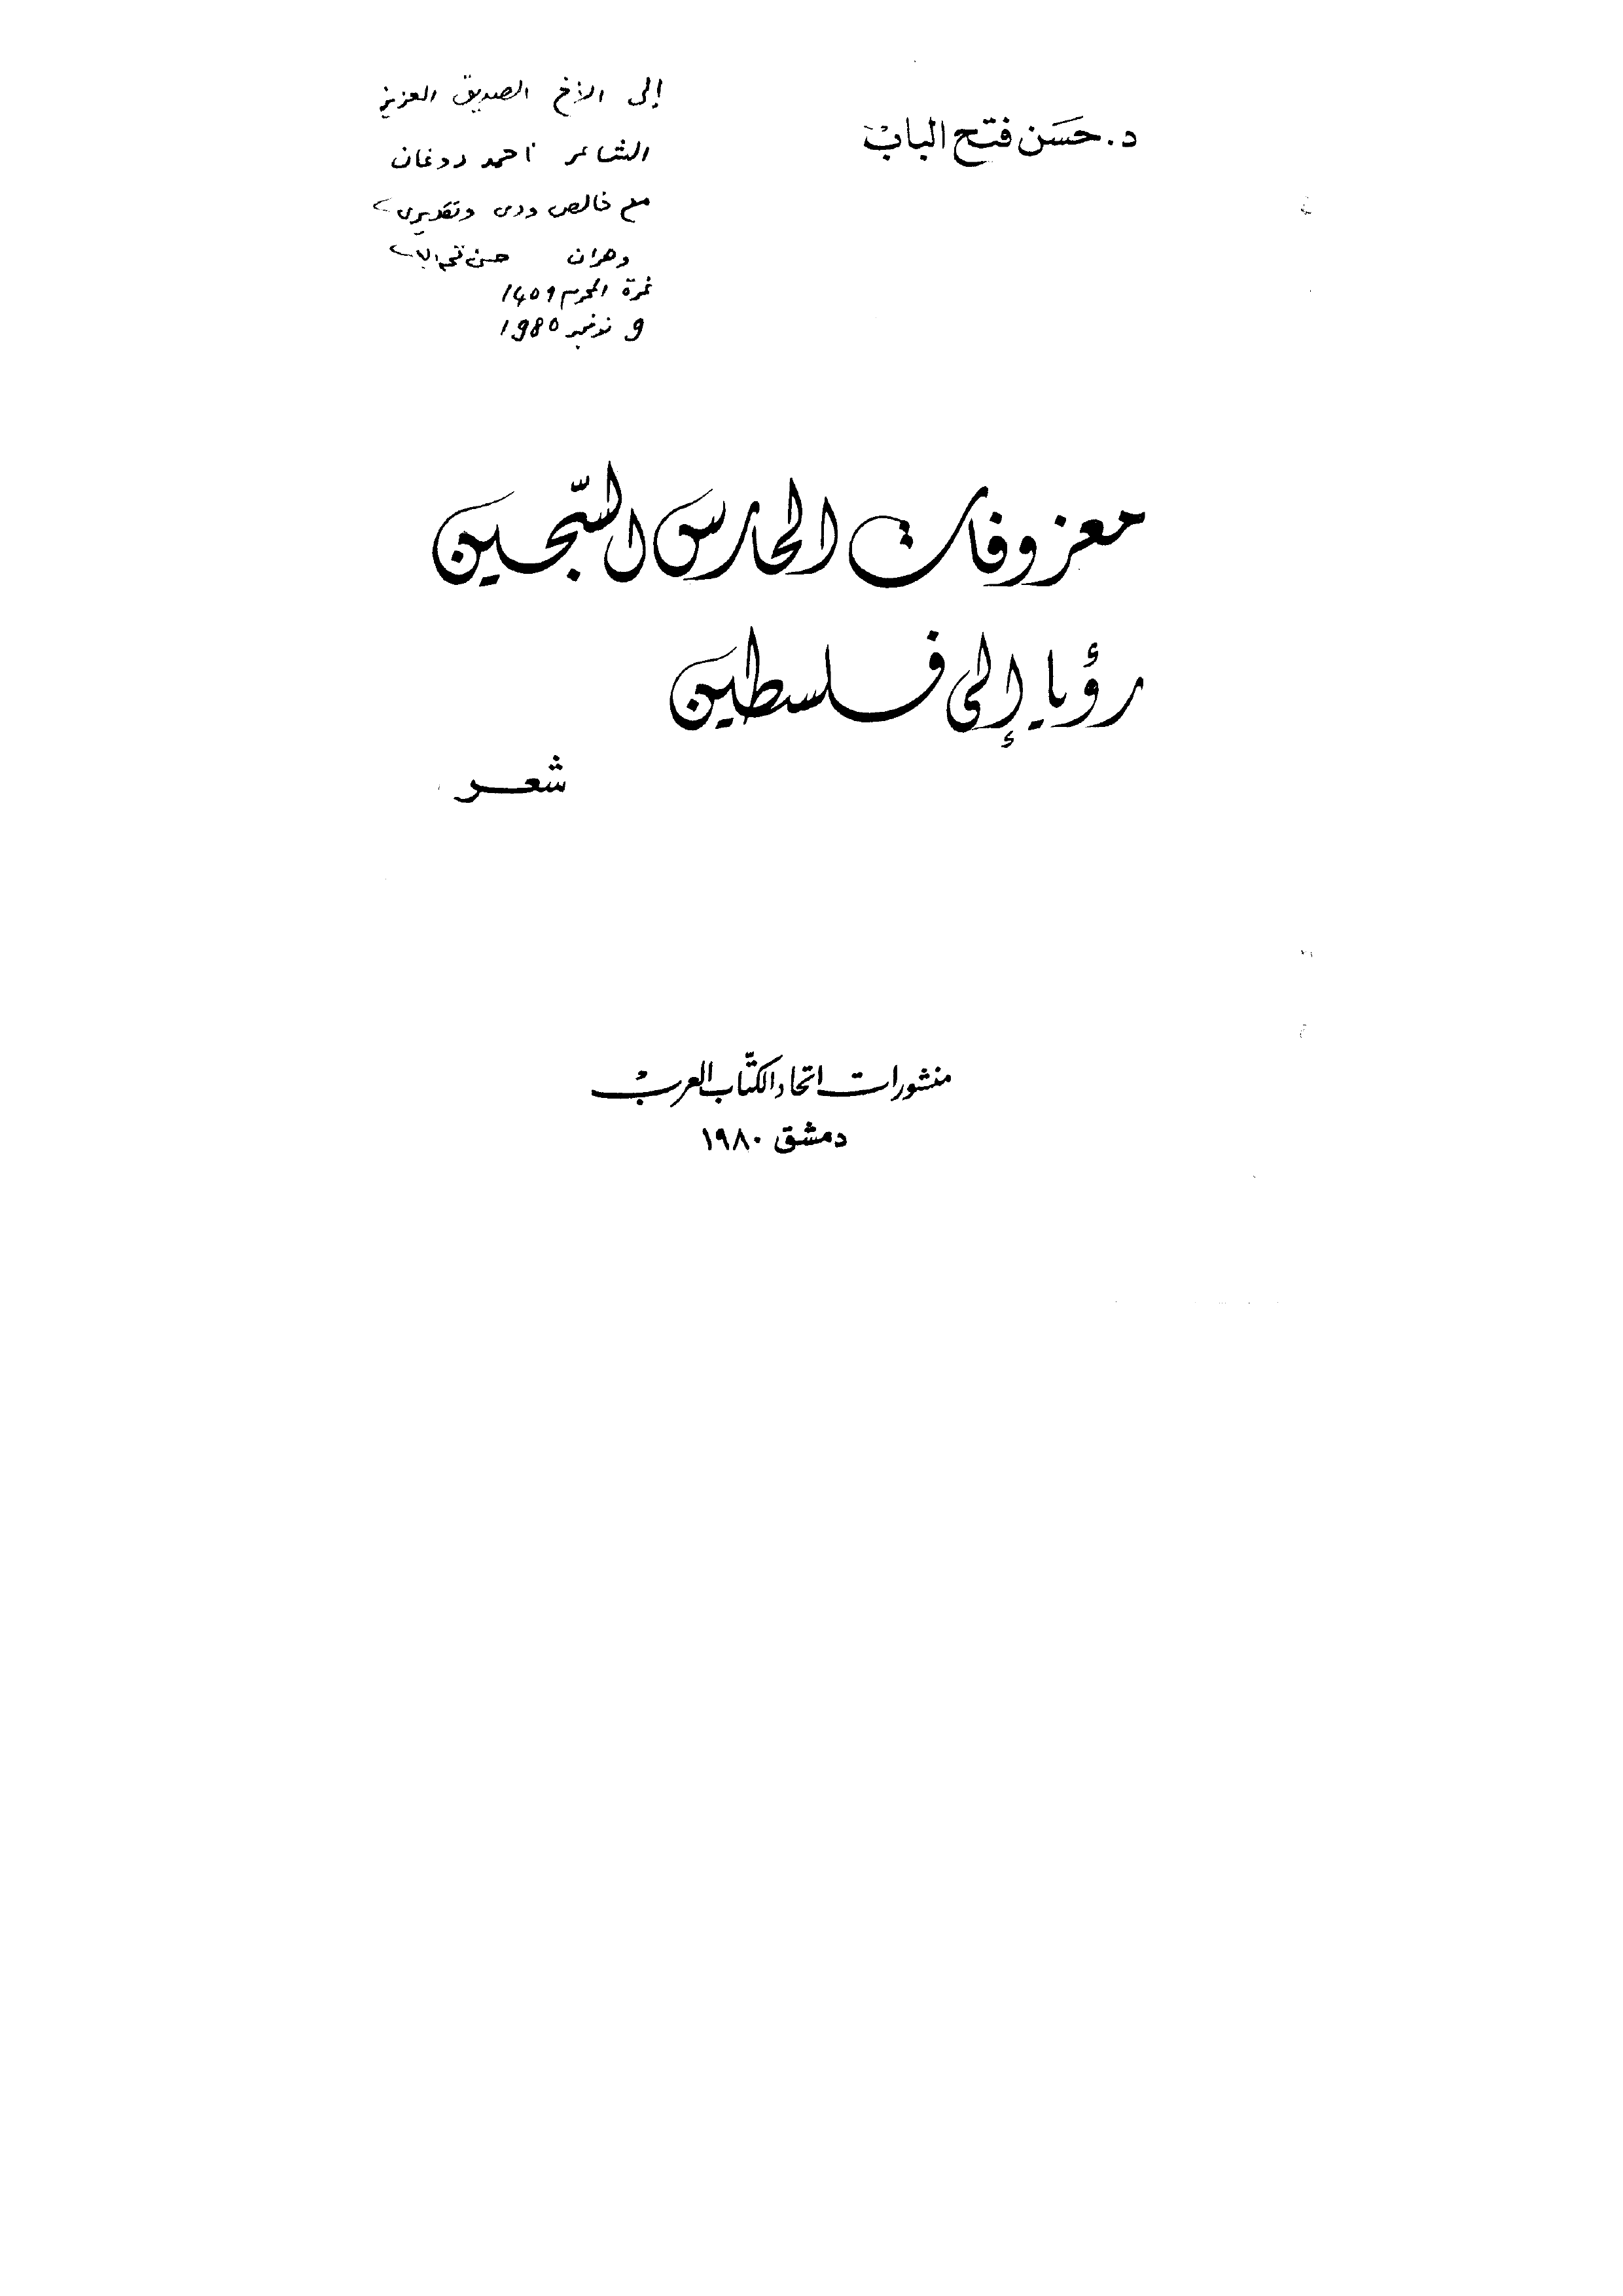 د. حَسَن فتح الباب
إلى الأخ الصديق العزيز
الشاعر أحمد دوغان
مع خالص ودى وتقديرى
وهران حسن فتح الباب
غرة المحرم 1401
9 نوفمبر 1980
معزوفات الحارس السّجين
رؤيا إلى فلسطين
شعر
منشورات اتحاد الكتّاب العرب
دمشق ١٩٨٠